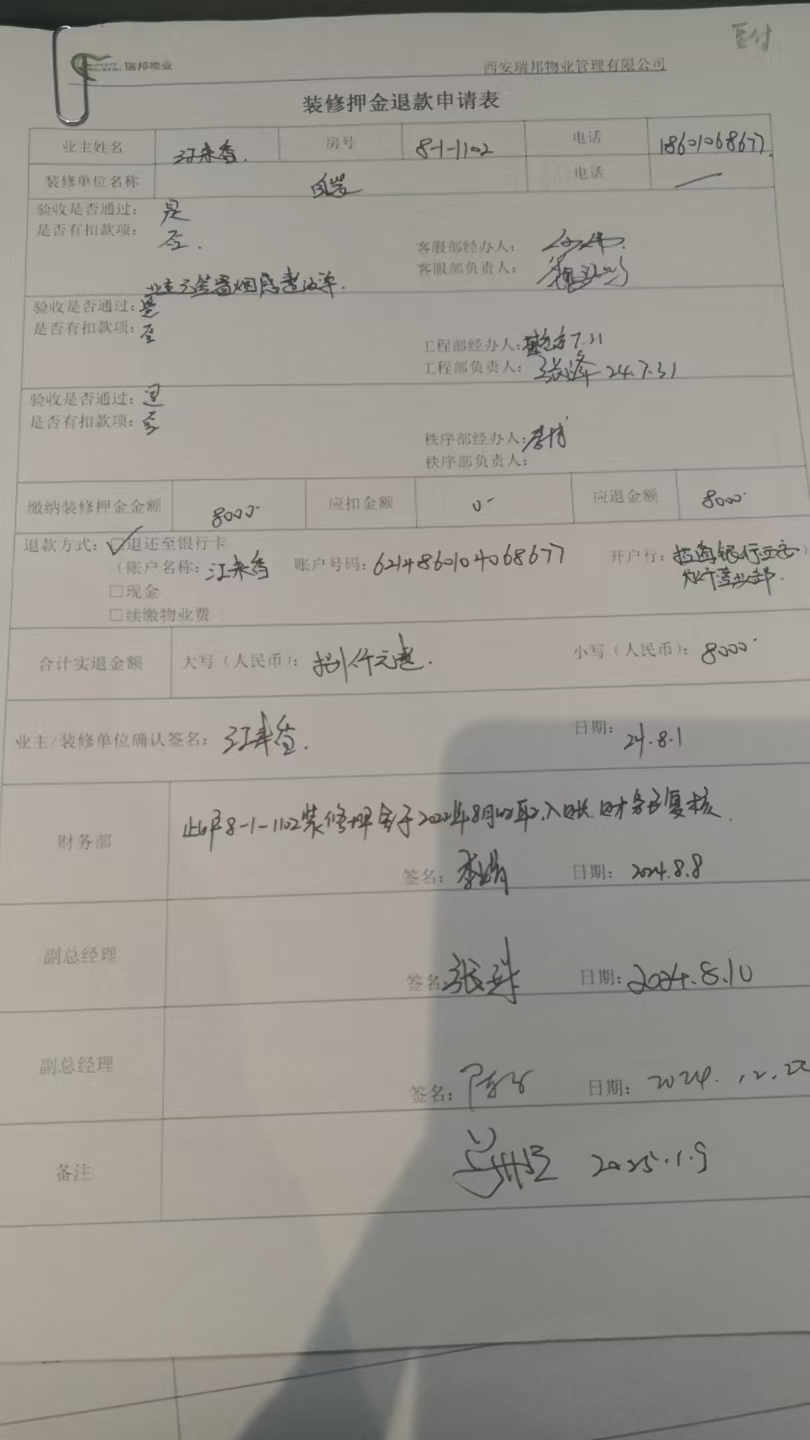 瑞邦物业
西安瑞邦物业管理有限公司
装修押金退款申请表
业主姓名 江来香. 房号 8-1-1102 电话 18601068677.
装修单位名称 自装 电话 —
验收是否通过: 是
是否有扣款项: 否.
客服部经办人:
客服部负责人:
业主已签署烟感
验收是否通过: 是
是否有扣款项: 否
工程部经办人: 7.31
工程部负责人: 张峰 24.7.31
验收是否通过: 是
是否有扣款项: 否
秩序部经办人: 李博
秩序部负责人:
缴纳装修押金金额 8000- 应扣金额 0- 应退金额 8000-
退款方式: ☑退还至银行卡
(账户名称: 江来香 账户号码: 6214860104068677 开户行: 招商银行西安)
分行营业部.
□现金
□续缴物业费
合计实退金额 大写(人民币): 捌仟元整. 小写(人民币): 8000-
业主/装修单位确认签名: 江来香. 日期: 24.8.1
财务部 此户8-1-1102装修押金于2022年8月 入账.财务已复核.
签名: 李娟 日期: 2024.8.8
副总经理 签名: 张 日期: 2024.8.10
副总经理 签名: 日期: 2024.12.
备注 2025.1.9